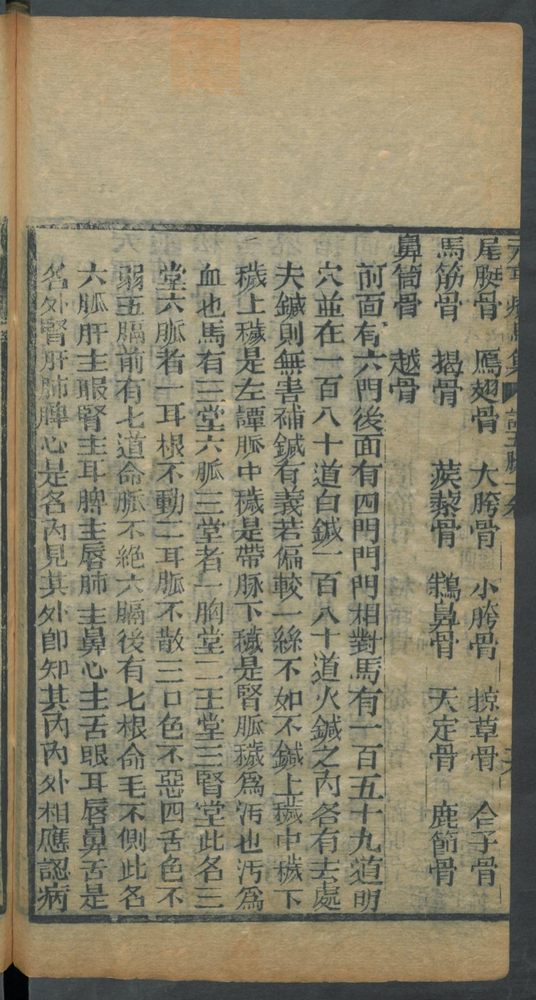 尾骹骨　鴈翅骨　大胯骨　小胯骨　掠草骨　合子骨
馬筋骨　揭骨　蒺藜骨　鵝鼻骨　天定骨　鹿節骨
鼻筒骨　越骨
前面有六門後面有四門門門相對馬有一百五十九道明
穴並在一百八十道白鍼一百八十道火鍼之內各有去處
夫鍼則無害補鍼有義若偏較一絲不如不鍼上穢中穢下
穢上穢是左譚脈中穢是帶脉下穢是腎脈穢爲汚也汚爲
血也馬有三堂六脈三堂者一胸堂二玉堂三腎堂此名三
堂六脈者一耳根不動二耳脈不散三口色不惡四舌色不
弱五膈前有七道命脈不絶六膈後有七根命毛不側此名
六脈肝主眼腎主耳脾主唇肺主鼻心主舌眼耳唇鼻舌是
名外腎肝肺脾心是名內見其外卽知其內內外相應認病